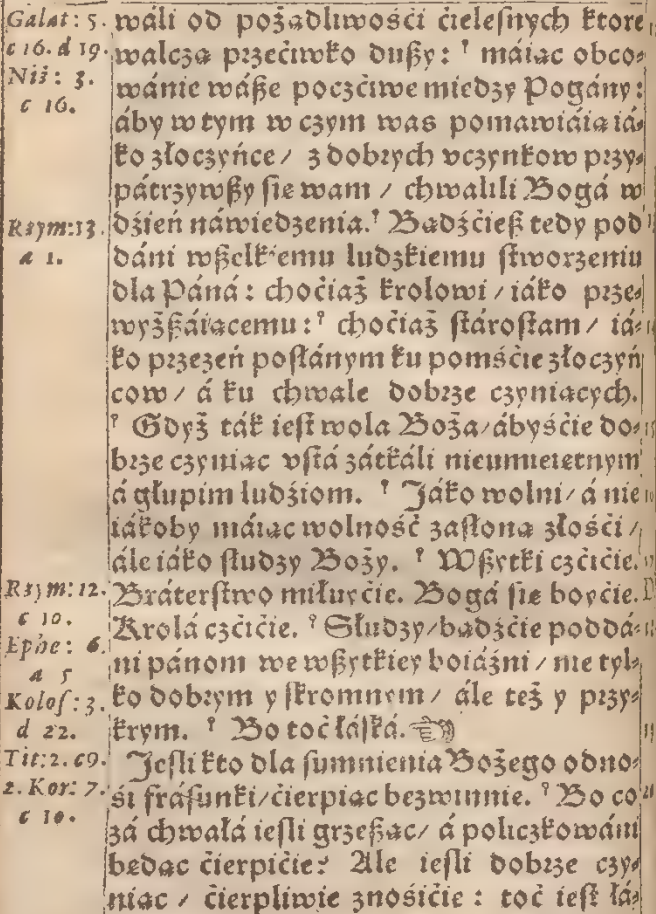 Galat: 5.
c 16. d 19.
Niż: 3.
c 16.
Rzym: 13.
a 1.
Rzym: 12.
c 10.
Ephe: 6.
a 5
Kolos: 3.
d 22.
Tit: 2. c 9.
2. Kor: 7.
c 10.
wáli od pożądliwośći ćieleſnych ktore
walcżą przećiwko dußy: ? máiąc obco⸗
wánie wáße pocżćiwe miedzy Pogány:
áby w tym w cżym was pomawiáią iá⸗
ko złocżyńce / z dobrych vcżynkow przy⸗
pátrzywßy ſie wam / chwalili Bogá w
dźień náwiedzenia. ? Bądźćież tedy pod
dáni wßelkiemu ludzkiemu ſtworzeniu
dla Páná: choćiaż krolowi / iáko prze⸗
wyżßáiącemu: ? choćiaż ſtároſtam / iá⸗
ko przezeń poſłánym ku pomśćie złocżyń
cow / á ku chwale dobrze cżyniących.
? Gdyż ták ieſt wola Boża / ábyśćie do⸗
brze cżyniąc vſtá zátkáli nieumieiętnym
á głupim ludźiom. ? Jáko wolni / á nie
iákoby máiąc wolność zaſłoną złośći /
ále iáko ſłudzy Boży. ? Wßytki cżćićie.
Bráterſtwo miłuyćie. Bogá ſie boyćie.
Krolá cżćićie. ? Słudzy / bądźćie poddá⸗
ni pánom we wßytkiey boiáźni / nie tyl⸗
ko dobrym y ſkromnym / ále też y przy⸗
krym. ? Bo toć łáſká. ☜
Jeſli kto dla ſumnienia Bożego odno⸗
śi fráſunki / ćierpiąc bezwinnie. ? Bo co
zá chwałá ieſli grzeßąc / á policżkowáni
będąc ćierpićie? Ale ieſli dobrze cży⸗
niąc / ćierpliwie znośićie: toć ieſt łá⸗